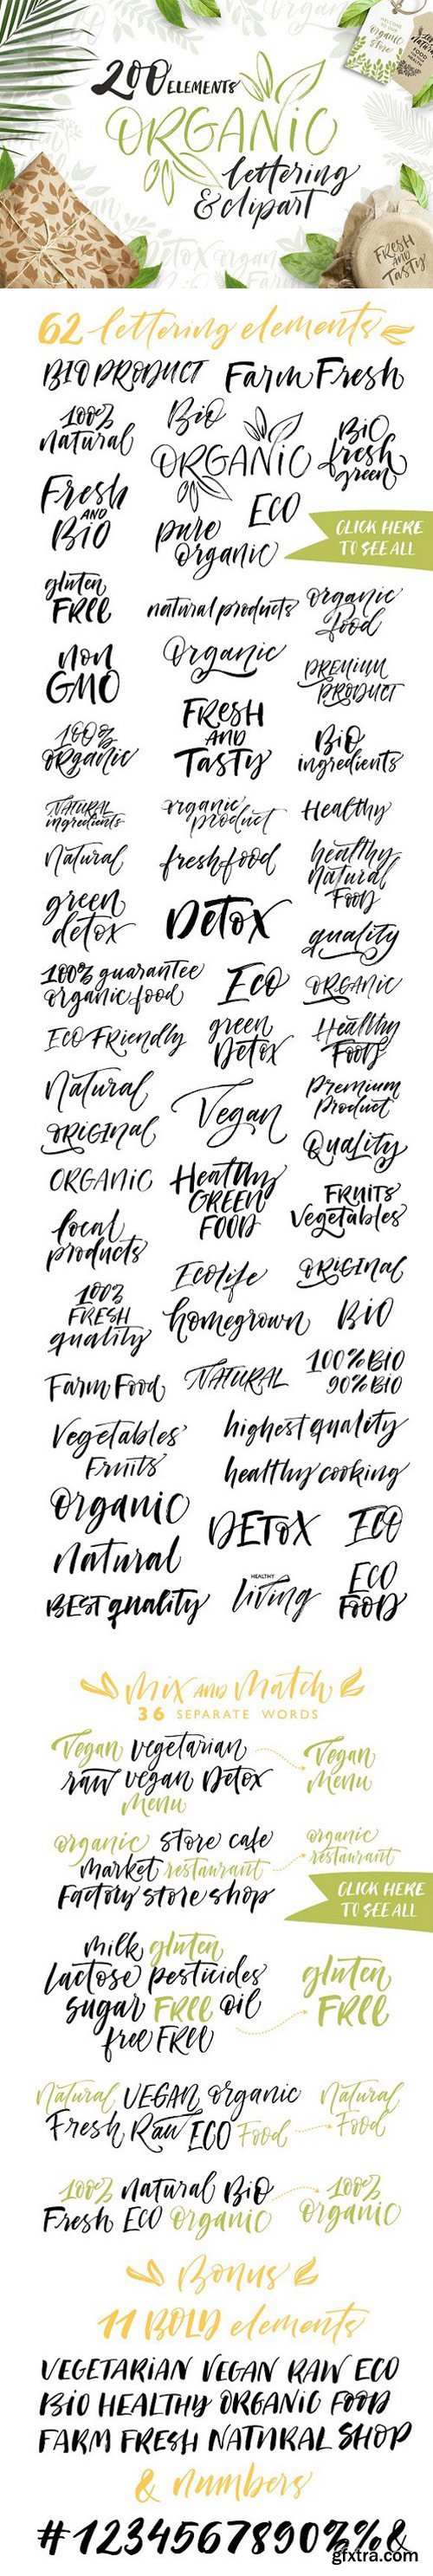 200 ELEMENTS
ORGANIC
lettering
& clipart
WELCOME
TO OUR
Organic
store
FRESH
AND
Tasty
62 lettering elements
BIO PRODUCT Farm Fresh
100% natural
Bio
ORGANIC
BiO fresh green
Fresh AND BiO
pure organic
ECO
CLICK HERE
TO SEE ALL
gluten FREE
natural products
organic food
non GMO
Organic
PREMIUM PRODUCT
100% organic
FRESH AND TASTY
BiO ingredients
NATURAL ingredients
organic product
Healthy
Natural
fresh food
healthy Natural Food
green detox
DeTOX
quality
100% guarantee organic food
Eco
ORGANIC
Eco FRiendly
green Detox
Healthy Food
Natural
Vegan
Premium Product
ORiGiNal
Quality
ORGANiC
Healthy GREEN FOOD
FRuiTs Vegetables
local products
Ecolife
ORiGiNal
100% FRESH quality
homegrown
BiO
Farm Food
NATURAL
100% BiO
90% BiO
Vegetables Fruits
highest quality
healthy cooking
Organic
natural
DETOX
ECO
BEST quality
HEALTHY
living
ECO FOOD
Mix AND Match
36 SEPARATE WORDS
Vegan vegetarian
raw vegan Detox
Menu
Vegan Menu
organic store cafe
market restaurant
Factory store shop
organic restaurant
CLICK HERE
TO SEE ALL
milk gluten
lactose pesticides
sugar FREE oil
free FREE
gluten FREE
Natural VEGAN organic
Fresh Raw ECO Food
Natural Food
100% natural BiO
Fresh ECO organic
100% organic
Bonus
11 BOLD elements
VEGETARIAN VEGAN RAW ECO
BiO HEALTHY ORGANIC FOOD
FARM FRESH NATURAL SHOP
& numbers
#1234567890%%&
gfxtra.com